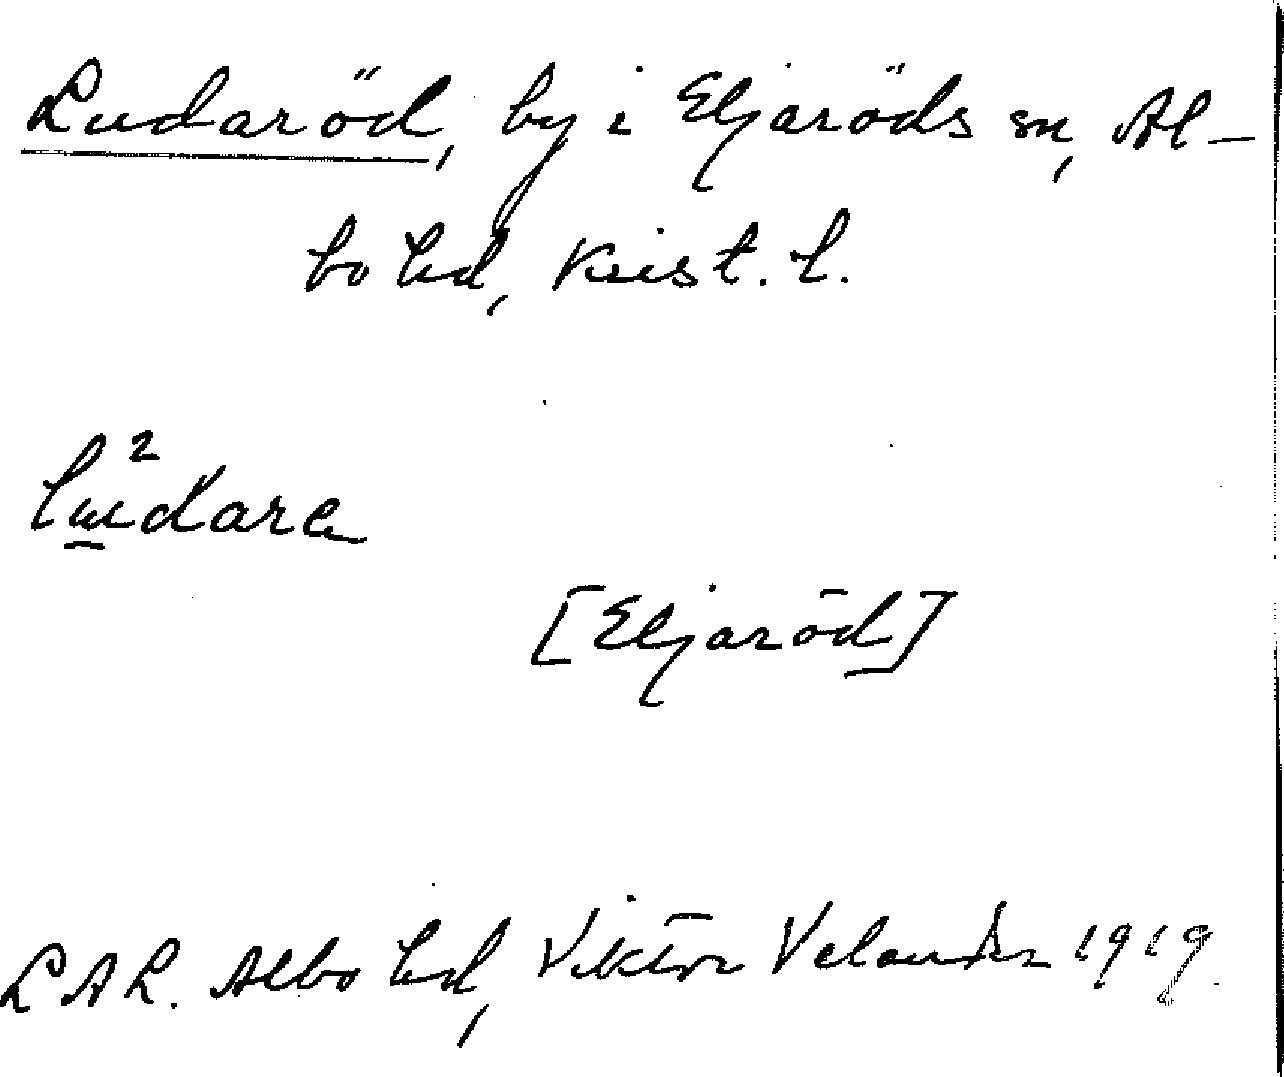 Ludaröd, by i Eljaröds sn, Al-
bo hd, Krist. l.
[Eljaröd]
LAL. Albo hd, Viktor Velander 1919.